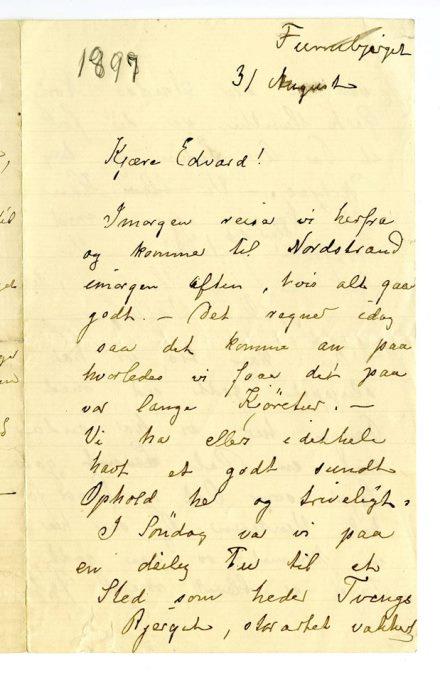 1897
Furubjerget
31 August
Kjære Edvard!
Imorgen reise vi herfra
og komme til Nordstrand
imorgen Aften, hvis alt gaar
godt. — Det regner idag
saa det komme an paa
hvorledes vi faae det paa
vor lange Kjöretur. —
Vi ha ellers idethele
havt et godt sundt
Ophold he og triveligt.
I Söndag var vi paa
en deilig Tur til et
Sted som heder Tvengs
Bjerget, vakkert